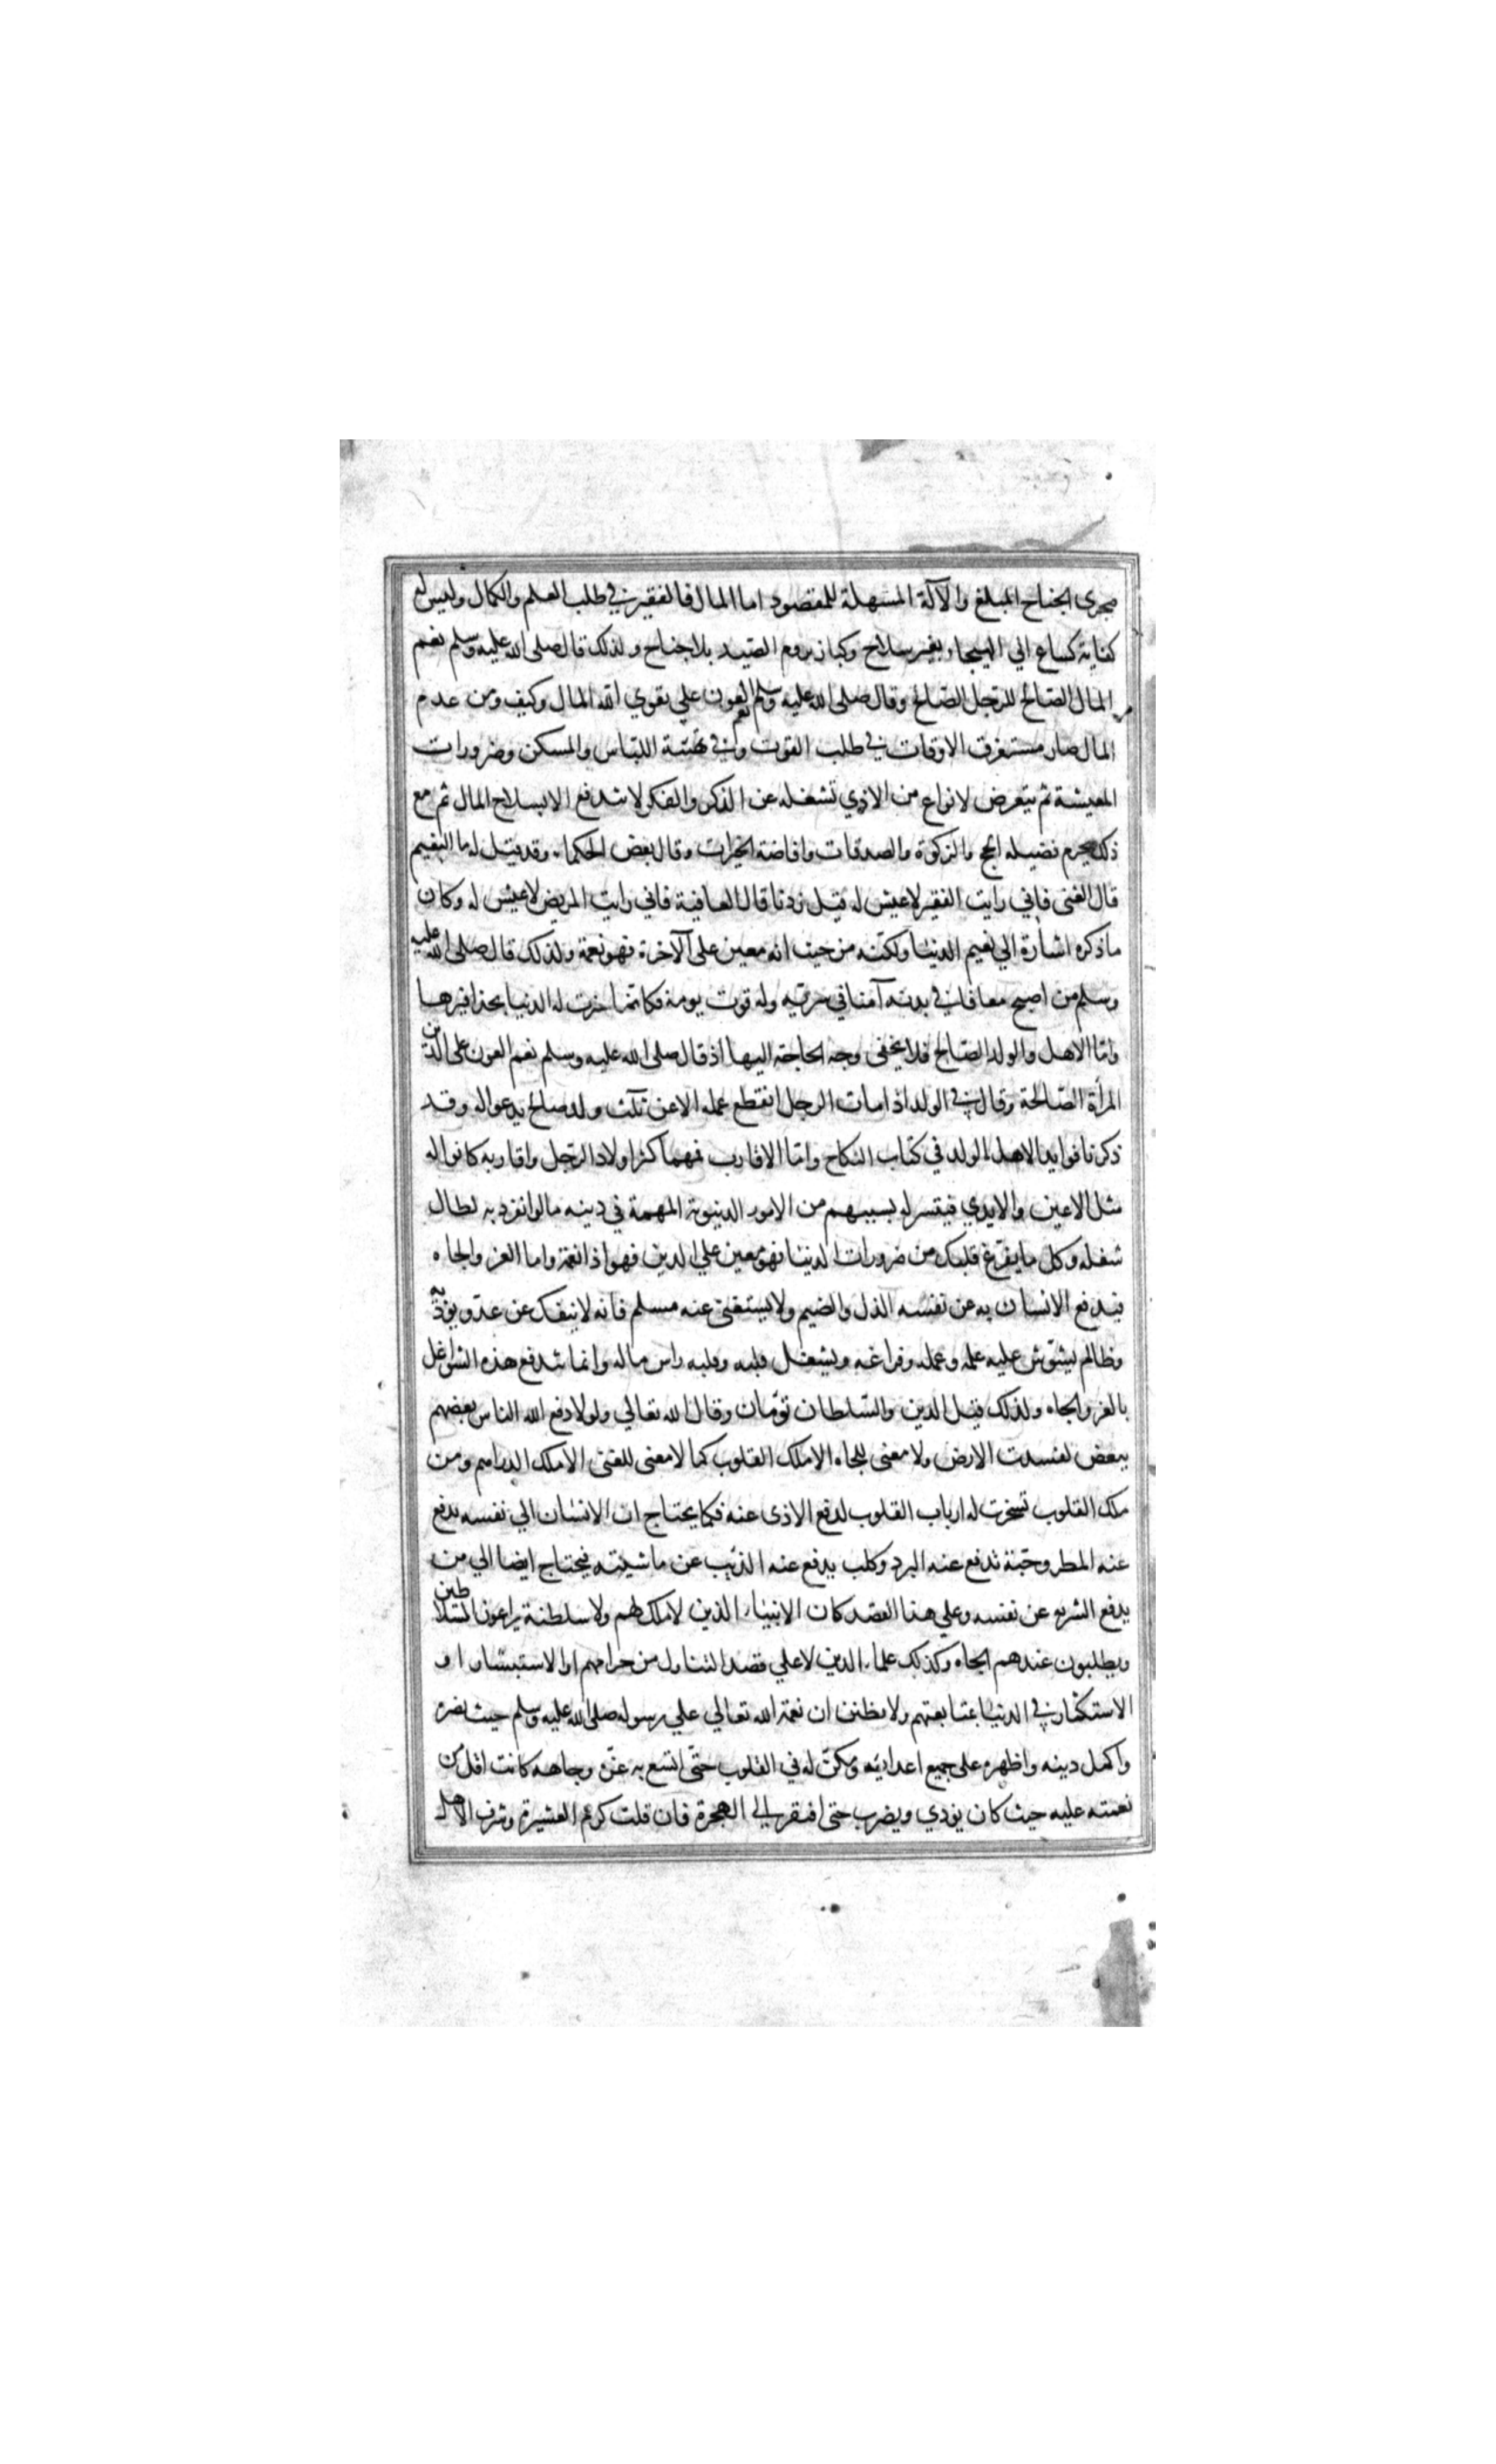 مجرى الجناح المبلغ والآلة المسهلة للمقصود اما المال فالفقير في طلب العلم والكمال وليس له
كفاية كساع الي الهيجاء بغير سلاح وكباز يروم الصيد بلا جناح ولذلك قال صلى الله عليه وسلم نعم
المال الصالح للرجل الصالح وقال صلى الله عليه وسلم نعم العون علي تقوي الله المال وكيف ومن عدم
المال صار مستغرق الاوقات في طلب القوت وفي تهيئة اللباس والمسكن وضرورات
المعيشة ثم يتعرض لانواع من الاذي تشغله عن الذكر والفكر لا تندفع الا بسلاح المال ثم مع
ذلك يحرم فضيلة الحج والزكوة والصدقات وافاضة الخيرات وقال بعض الحكماء وقد قيل له ما النعيم
قال الغنى فاني رايت الفقير لا عيش له قيل زدنا قال العافية فاني رايت المريض لا عيش له وكان
ما ذكره اشارة الي نعيم الدنيا ولكنه من حيث انه معين على الآخرة فهو نعمة ولذلك قال صلى الله عليه
وسلم من اصبح معافا في بدنه آمنا في سربه وله قوت يومه فكانما حيزت له الدنيا بحذافيرها
واما الاهل والولد الصالح فلا يخفى وجه الحاجة اليها اذ قال صلى الله عليه وسلم نعم العون على الدين
المرأة الصالحة وقال في الولد اذا مات الرجل انقطع عمله الا عن ثلث ولد صالح يدعوا له وقد
ذكرنا فوايد الاهل الولد في كتاب النكاح واما الاقارب فمهما كثر اولاد الرجل واقاربه كانوا له
مثل الاعين والايدي فيتيسر له بسببهم من الامور الدنيوية المهمة في دينه ما لو انفرد به لطال
شغله وكل ما يفرغ قلبك من ضرورات الدنيا فهو معين علي الدين فهو اذا نعمة واما العز والجاه
فيدفع الانسان به عن نفسه الذل والضيم ولا يستغنى عنه مسلم فانه لا ينفك عن عدو يوذيه
وظالم يشوش عليه علمه وعمله وفراغه ويشغل قلبه وقلبه راس ماله وانما تندفع هذه الشواغل
بالعز والجاه ولذلك قيل الدين والسلطان توّمان وقال الله تعالي ولولا دفع الله الناس بعضهم
ببعض لفسدت الارض ولا معنى للجاه الا ملك القلوب كما لا معنى للغنى الا ملك الدراهم ومن
ملك القلوب تسخرت له ارباب القلوب لدفع الاذى عنه فكما يحتاج ان الانسان الي نفسه يدفع
عنه المطر وجبّة تدفع عنه البرد وكلب يدفع عنه الذئب عن ماشيته فيحتاج ايضا الي من
يدفع الشر به عن نفسه وعلي هذا القصد كان الانبياء الذين لا ملك لهم ولا سلطنة يراعون السلاطين
ويطلبون عندهم الجاه وكذلك علماء الدين لا علي قصد التناول من خزائنهم او الاستبشار او
الاستكثار في الدنيا بمتابعتهم ولا تظنن ان نعمة الله تعالي علي رسوله صلى الله عليه وسلم حيث نصره
واكمل دينه واظهره على جميع اعدائه ومكن له في القلوب حتى اتسع به عزه وجاهه كانت اقل من
نعمته عليه حيث كان يوذي ويضرب حتى افتقر الي الهجرة فان قلت كرم العشيرة وشرف الاهل